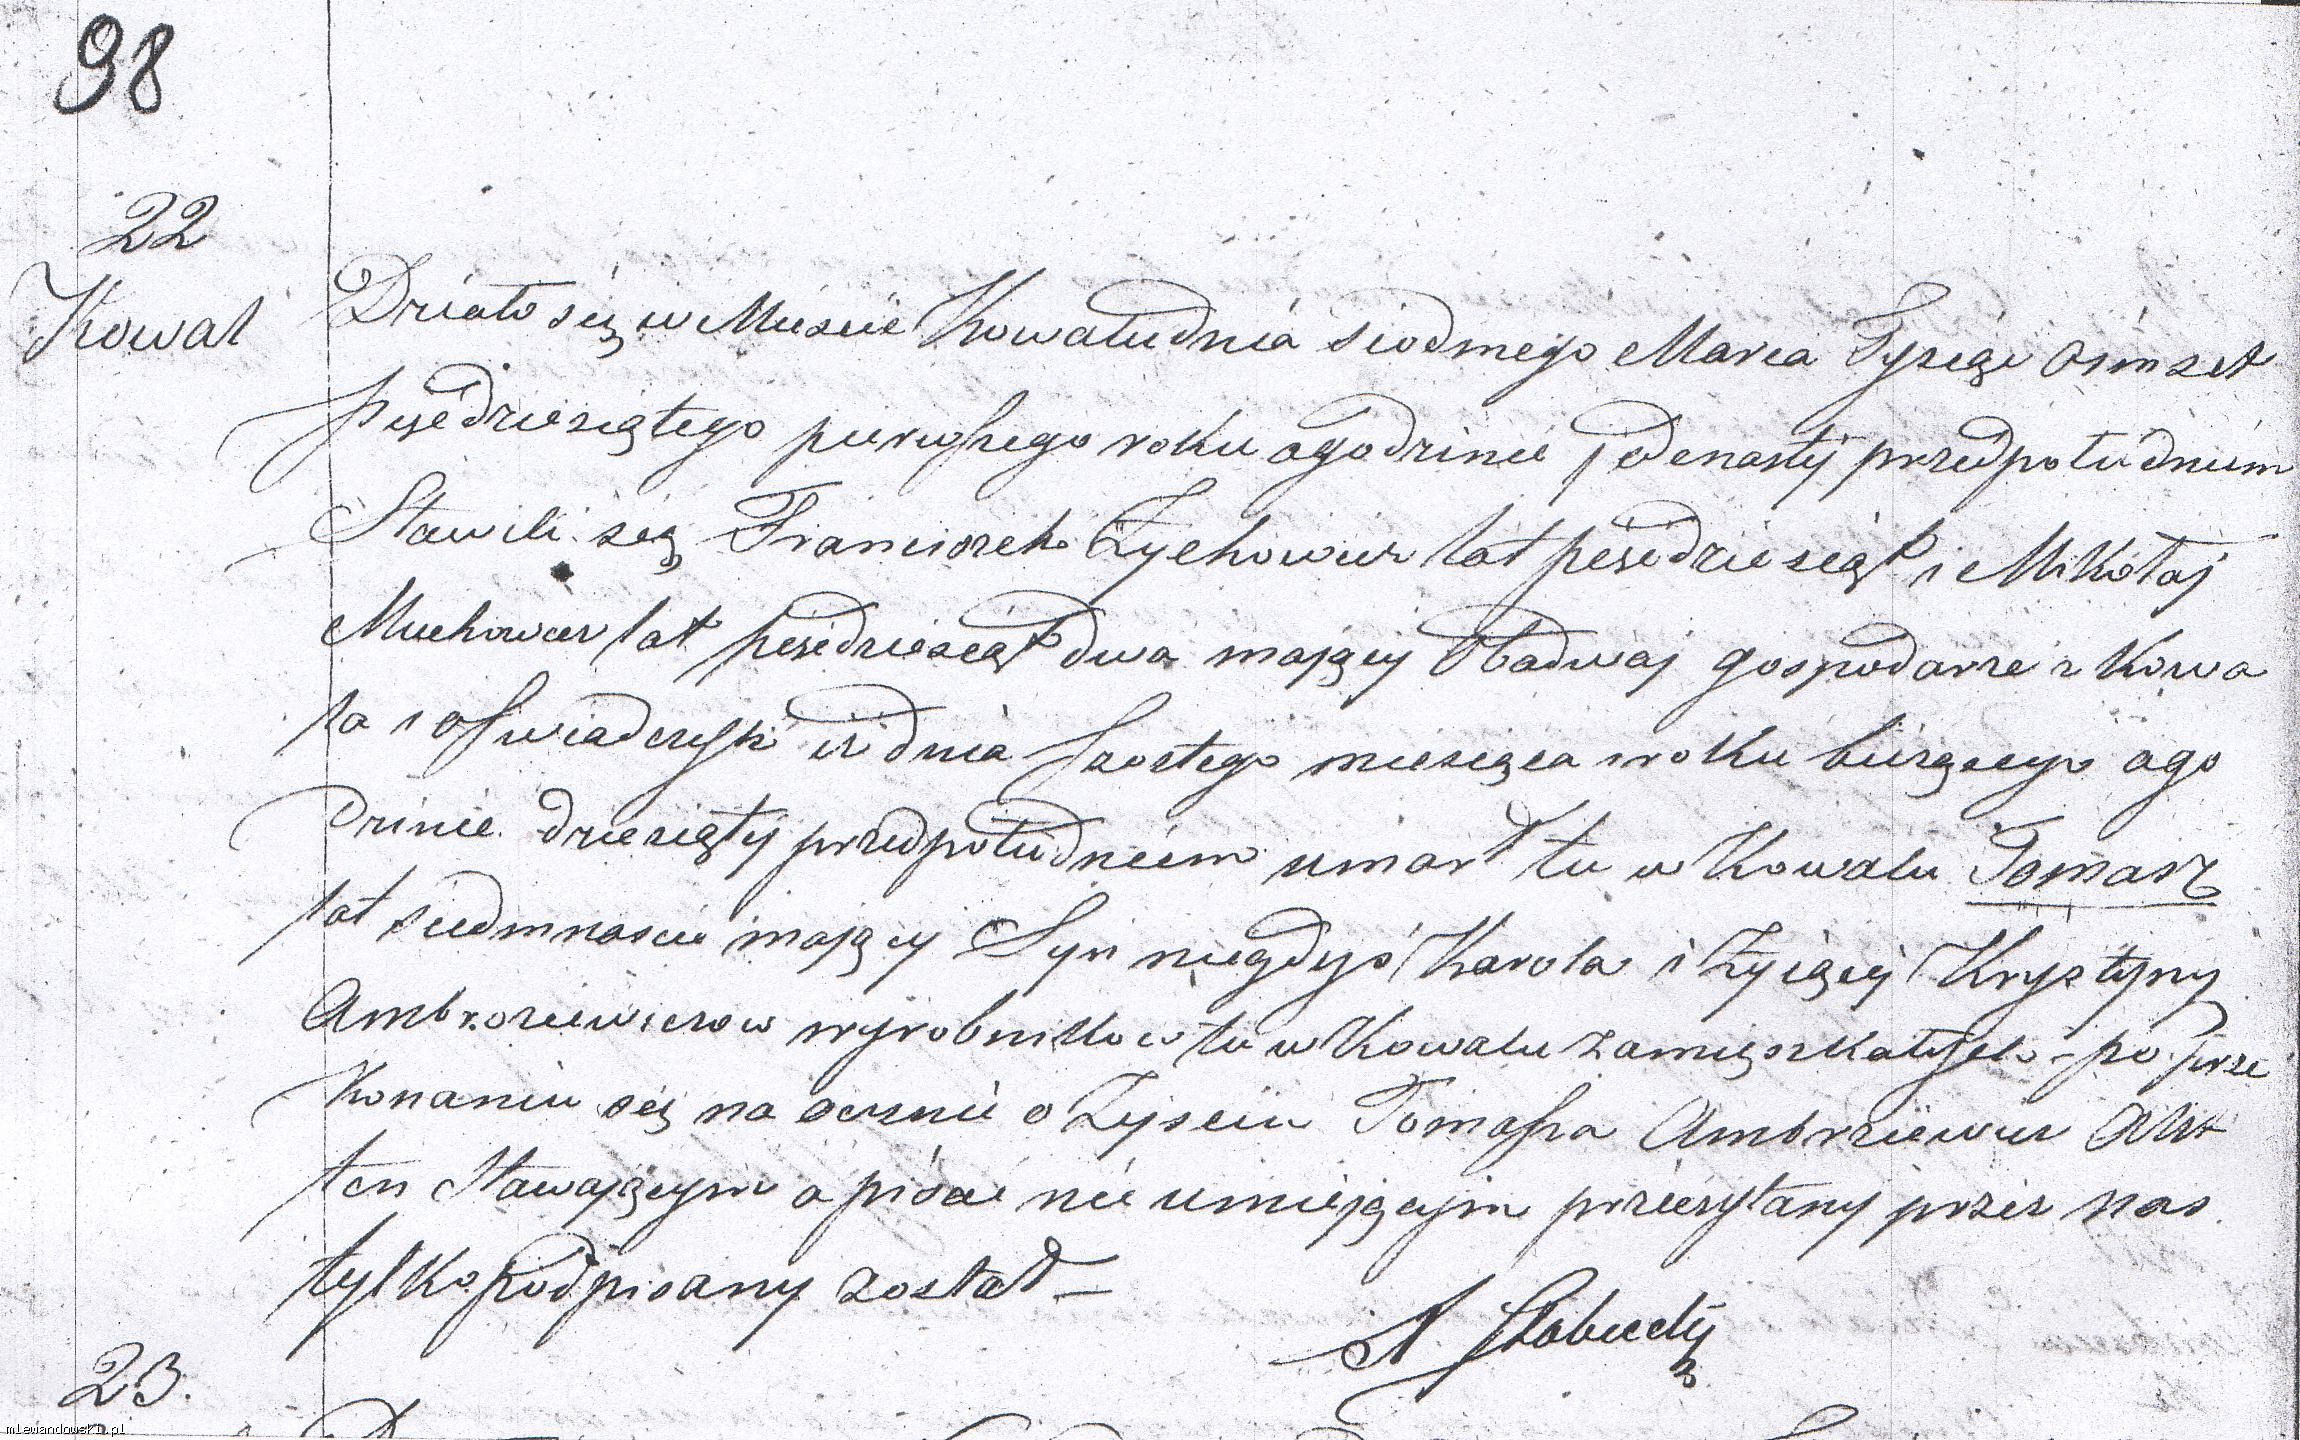 98
22
Kowal
Działo się w Mieście Kowalu dnia siodmego Marca Tysiąc osmset
pięćdziesiątego pierwszego roku o godzinie jedenastý przed południem
Stawili się Franciszek Zychowicz lat pięćdziesiąt i Mikołaj
Muchowicz lat pięćdziesiąt dwa mający Obadwaj gospodarze z Kowa
la i oświadczyli iż dnia szostego miesiąca i roku bieżącego o go
dzinie dziesiąty przed południem umarł tu w Kowalu Tomasz
lat siedmnaście mający Syn niegdyś Karola i żyiącej Krystyny
Ambroziewiczow wyrobnikow tu w Kowalu zamięszkałych – po prze
konaniu się na ocznie o Zyściu Tomasza Ambrziewicz Akt
ten stawającym a pisać nie umiejącym przeczytany przez nas
tylko podpisany został –
23.
mlewandowski.pl